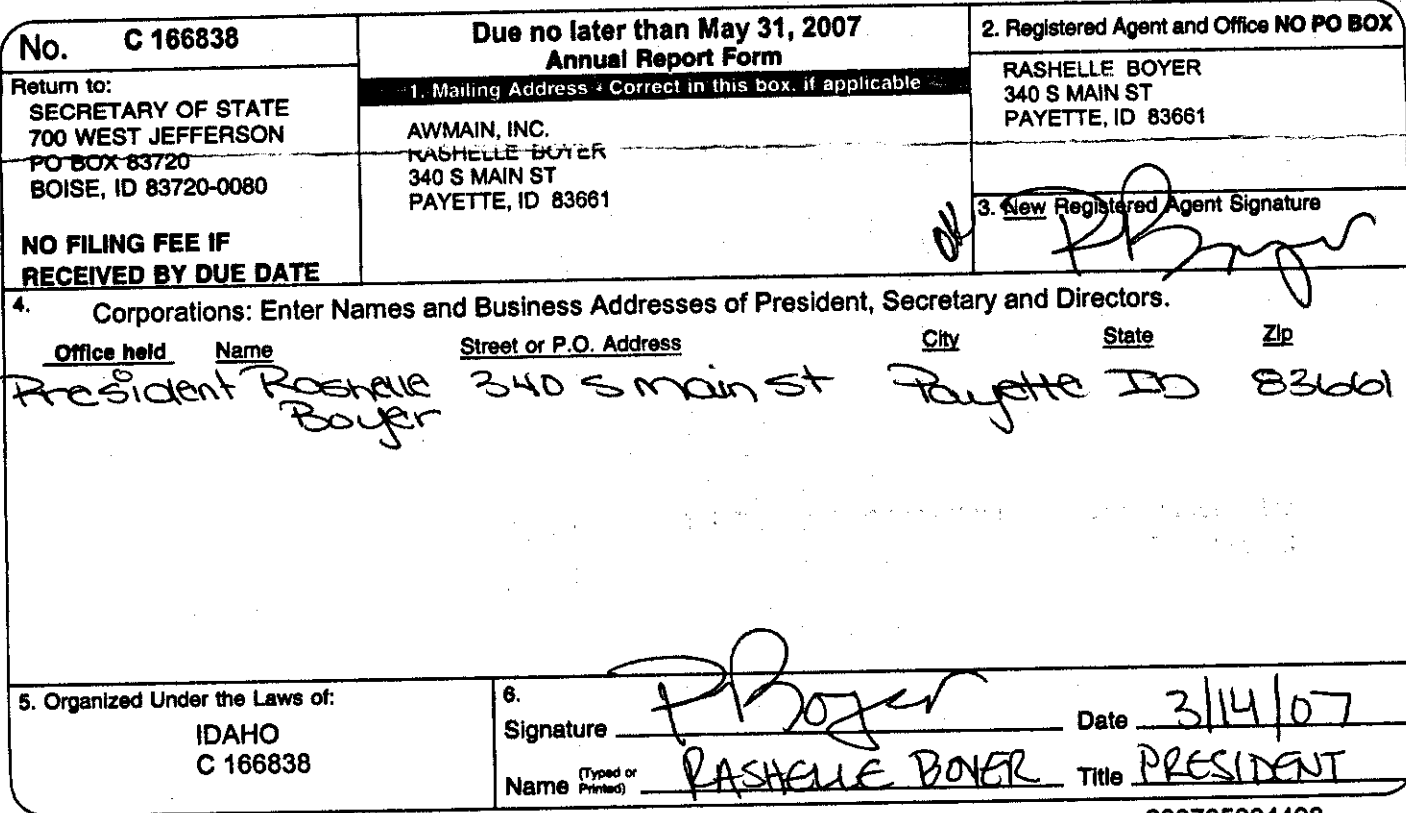 No. C 166838
Return to:
SECRETARY OF STATE
700 WEST JEFFERSON
PO BOX 83720
BOISE, ID 83720-0080
NO FILING FEE IF
RECEIVED BY DUE DATE
Due no later than May 31, 2007
Annual Report Form
1. Mailing Address - Correct in this box, if applicable
AWMAIN, INC.
RASHELLE BOYER
340 S MAIN ST
PAYETTE, ID 83661
2. Registered Agent and Office NO PO BOX
RASHELLE BOYER
340 S MAIN ST
PAYETTE, ID 83661
3. New Registered Agent Signature
RBoyer
4. Corporations: Enter Names and Business Addresses of President, Secretary and Directors.
Office held Name Street or P.O. Address City State Zip
President Rashelle 340 S Main St Payette ID 83661
Boyer
5. Organized Under the Laws of:
IDAHO
C 166838
6.
Signature RBoyer Date 3/14/07
Name (Typed or Printed) RASHELLE BOYER Title PRESIDENT